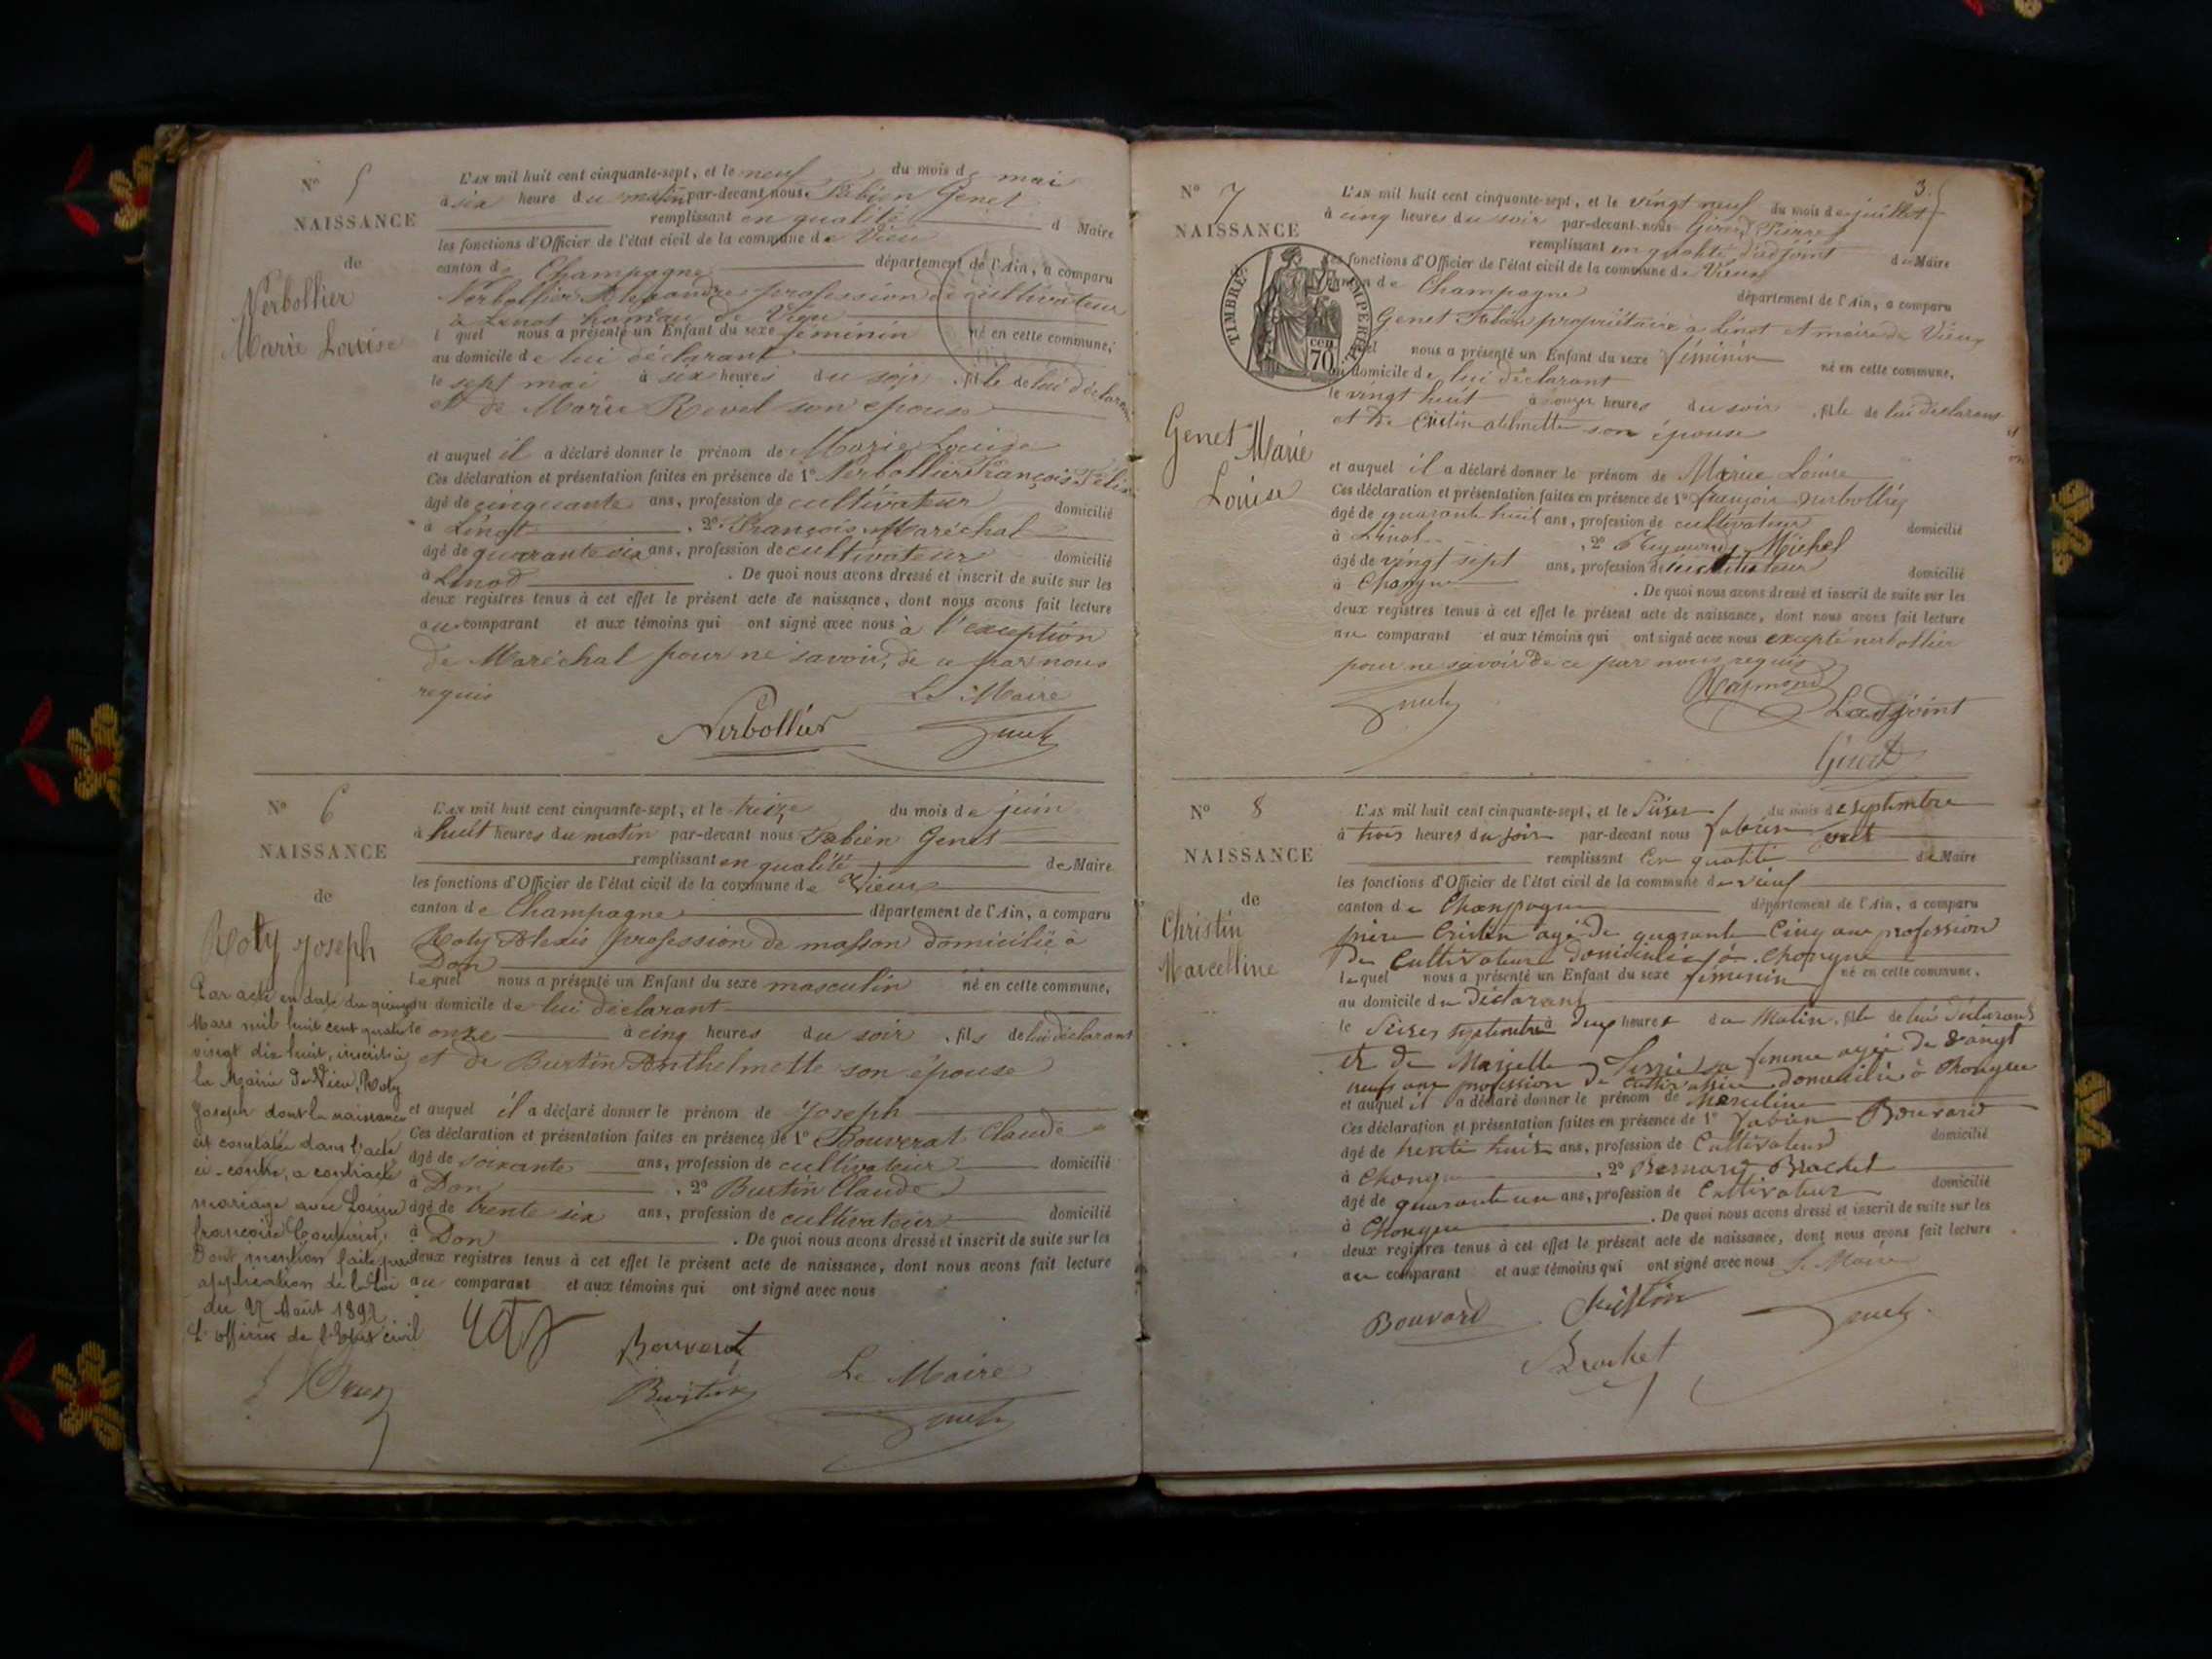 N° 5
NAISSANCE
de
Nerbollier
Marie Louise
L'AN mil huit cent cinquante-sept, et le neuf du mois de mai
à six heure du matin par-devant nous Fabien Genet
remplissant en qualité d Maire
les fonctions d'Officier de l'état civil de la commune de Vieu
canton de Champagne département de l'Ain, a comparu
Nerbollier Alexandre profession de cultivateur
à Linot hameau de Vieu
l quel nous a présenté un Enfant du sexe féminin né en cette commune,
au domicile de lui déclarant
le sept mai à six heures du soir, fille de lui déclarant
et de Marie Revel son épouse
et auquel il a déclaré donner le prénom de Marie Louise
Ces déclaration et présentation faites en présence de 1° Nerbollier François Félix
âgé de cinquante ans, profession de cultivateur domicilié
à Linot, 2° François Maréchal
âgé de quarante six ans, profession de cultivateur domicilié
à Linod. De quoi nous avons dressé et inscrit de suite sur les
deux registres tenus à cet effet le présent acte de naissance, dont nous avons fait lecture
au comparant et aux témoins qui ont signé avec nous à l'exception
de Maréchal pour ne savoir, de ce par nous
requis Le Maire
Nerbollier Genet
N° 6
NAISSANCE
de
Roty Joseph
Par acte en date du quinze
Mars mil huit cent quatre
vingt dix huit, inscrit à
la Mairie de Vieu, Roty
Joseph dont la naissance
est constatée dans l'acte
ci-contre, a contracté
mariage avec Louise
françoise
Dont mention faite par
application de la Loi
du 17 Août 1897
L'officier de l'Etat civil
L'AN mil huit cent cinquante-sept, et le treize du mois de juin
à huit heures du matin par-devant nous Fabien Genet
remplissant en qualité de Maire
les fonctions d'Officier de l'état civil de la commune de Vieux
canton de Champagne département de l'Ain, a comparu
Roty Alexis profession de masson domicilié à
Don
Lequel nous a présenté un Enfant du sexe masculin né en cette commune,
au domicile de lui déclarant
le onze à cinq heures du soir, fils de lui déclarant
et de Burtin Anthelmette son épouse
et auquel il a déclaré donner le prénom de Joseph
Ces déclaration et présentation faites en présence de 1° Bouverat Claude
âgé de soixante ans, profession de cultivateur domicilié
à Don, 2° Burtin Claude
âgé de trente six ans, profession de cultivateur domicilié
à Don. De quoi nous avons dressé et inscrit de suite sur les
deux registres tenus à cet effet le présent acte de naissance, dont nous avons fait lecture
au comparant et aux témoins qui ont signé avec nous
Bouverat
Burtin Le Maire
Genet
3
N° 7
NAISSANCE
TIMBRE IMPERIAL
CEN 70
Genet Marie
Louise
L'AN mil huit cent cinquante-sept, et le vingt neuf du mois de juillet
à cinq heures du soir par-devant nous Girerd Pierre
remplissant en qualité d'adjoint du Maire
les fonctions d'Officier de l'état civil de la commune de Vieux
canton de Champagne département de l'Ain, a comparu
Genet Fabien propriétaire à Linot et maire de Vieux
lequel nous a présenté un Enfant du sexe féminin né en cette commune,
au domicile de lui déclarant
le vingt huit à onze heures du soir, fille de lui déclarant
et de son épouse
et auquel il a déclaré donner le prénom de Marie Louise
Ces déclaration et présentation faites en présence de 1° françois nerbollier
âgé de quarante huit ans, profession de cultivateur domicilié
à Linot, 2° Raymond Michel
âgé de vingt sept ans, profession de instituteur domicilié
à Chongne. De quoi nous avons dressé et inscrit de suite sur les
deux registres tenus à cet effet le présent acte de naissance, dont nous avons fait lecture
au comparant et aux témoins qui ont signé avec nous excepté nerbollier
pour ne savoir de ce par nous requis
Genet Raymond Ladjoint
Girerd
N° 8
NAISSANCE
de
Christin
Marcelline
L'AN mil huit cent cinquante-sept, et le Seize du mois de septembre
à trois heures du soir par-devant nous fabien Genet
remplissant En qualité de Maire
les fonctions d'Officier de l'état civil de la commune de vieux
canton de Champagne département de l'Ain, a comparu
Cristin agé de quarante Cinq ans profession
De Cultivateur domicilié à Chongne
lequel nous a présenté un Enfant du sexe féminin né en cette commune,
au domicile du Déclarant
le Seize septembre à deux heures du Matin, fille de lui Déclarant
et De sa femme agée De vaingt
neuf ans profession De domicilié à Chongne
et auquel il a déclaré donner le prénom de Marceline
Ces déclaration et présentation faites en présence de 1° fabien Bouvard
âgé de trente huit ans, profession de Cultivateur domicilié
à Chongne, 2° Bernard Brachet
âgé de quarante un ans, profession de Cultivateur domicilié
à Chongne. De quoi nous avons dressé et inscrit de suite sur les
deux registres tenus à cet effet le présent acte de naissance, dont nous avons fait lecture
au comparant et aux témoins qui ont signé avec nous Le Maire
Bouvard Christin Genet
Brachet